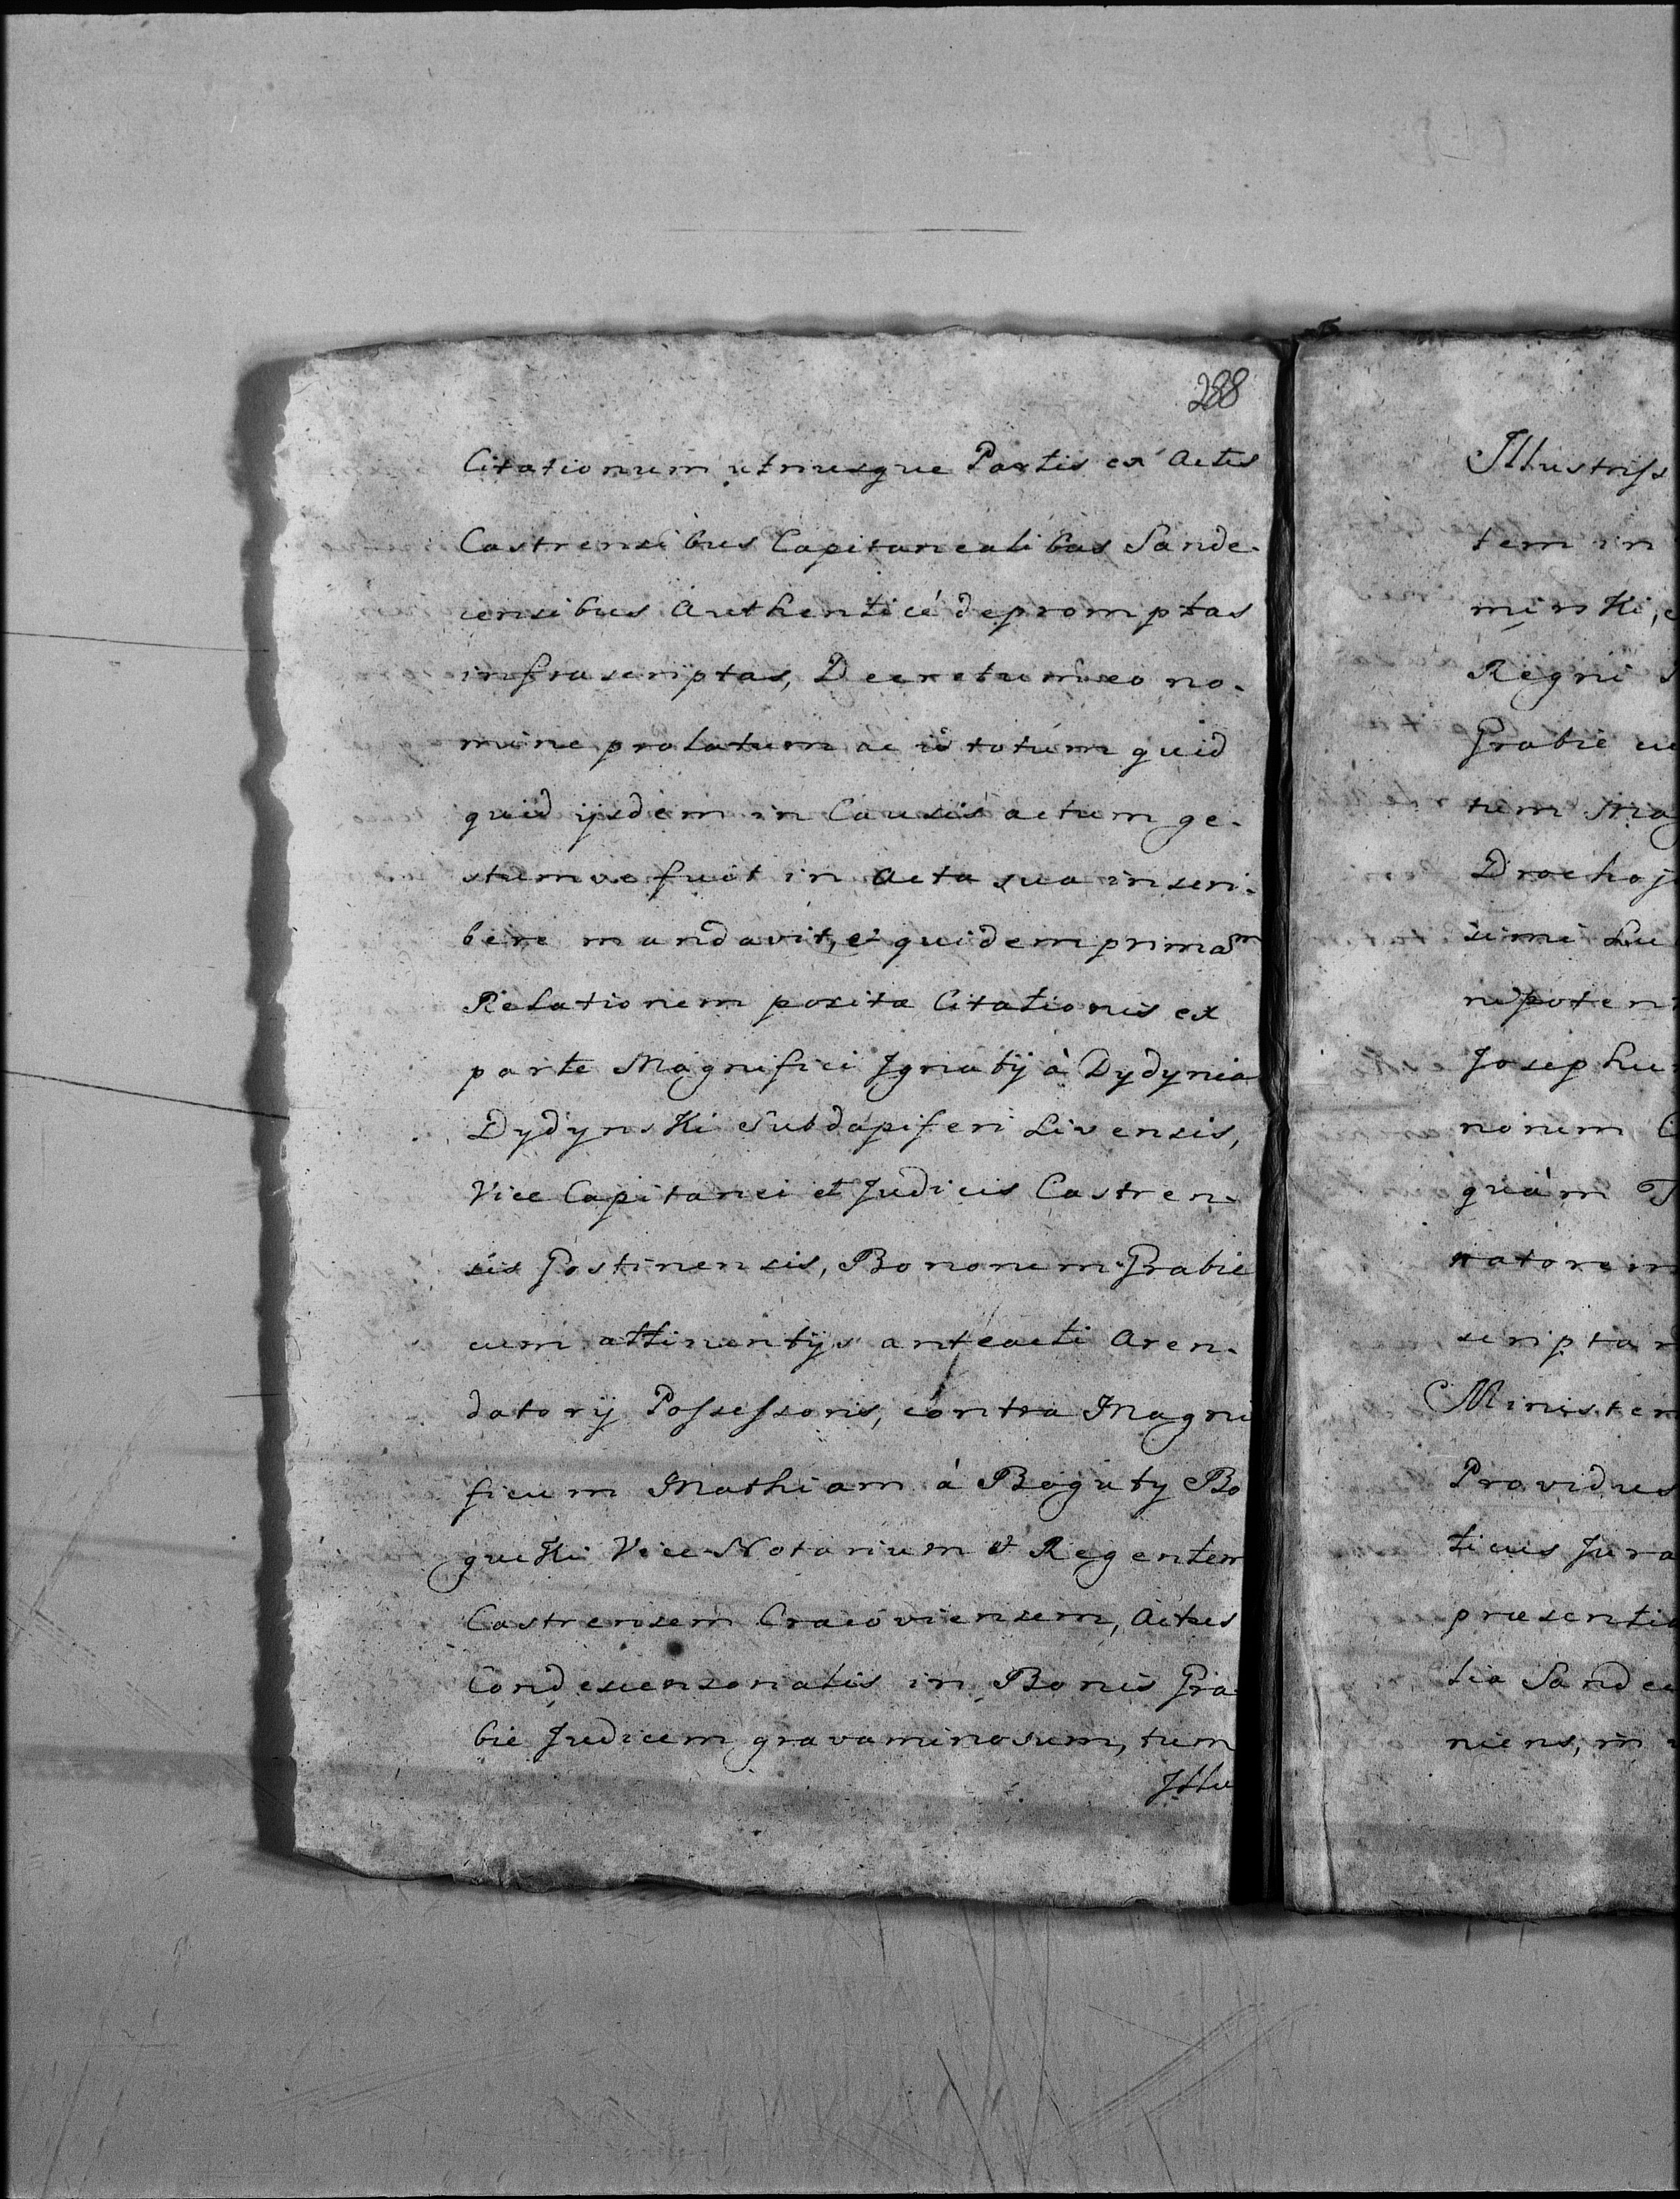 288
Citationum utriusque Partis ex Actis
Castrensibus Capitanealibus Sande-
censibus Authenticé depromptas
infrascriptas, Decretum eo no-
mine prolatum ac id totum quid
quid ijsdem in Causis actum ge-
stumve fuit in Acta sua inscri-
bere mandavit, et quidem primam
Relationem positæ Citationis ex
parte Magnifici Ignatij à Dydynia
Dydynski Subdapiferi Livensis,
Vice Capitanei et Judicis Castren-
sis Gostinensis, Bonorum Grabie
cum attinentijs anteacti Aren-
datorij Possessoris, contra Magni
ficum Mathiam à Boguty Bo
gucki Vice Notarium et Regentem
Castrensem Cracoviensem, Actus
Condescensorialis in Bonis Gra-
bie Judicem gravaminosum, tum
Illu
Illustriss
tem in
minski, e
Regni S
Grabie cu
tum Mag
Drohoj
simi Lu
nipoten
Josephu
norum C
quàm T
natorem
scriptar
Minister
Providus
ticus Jura
præsentia
tia Sande
niens, in